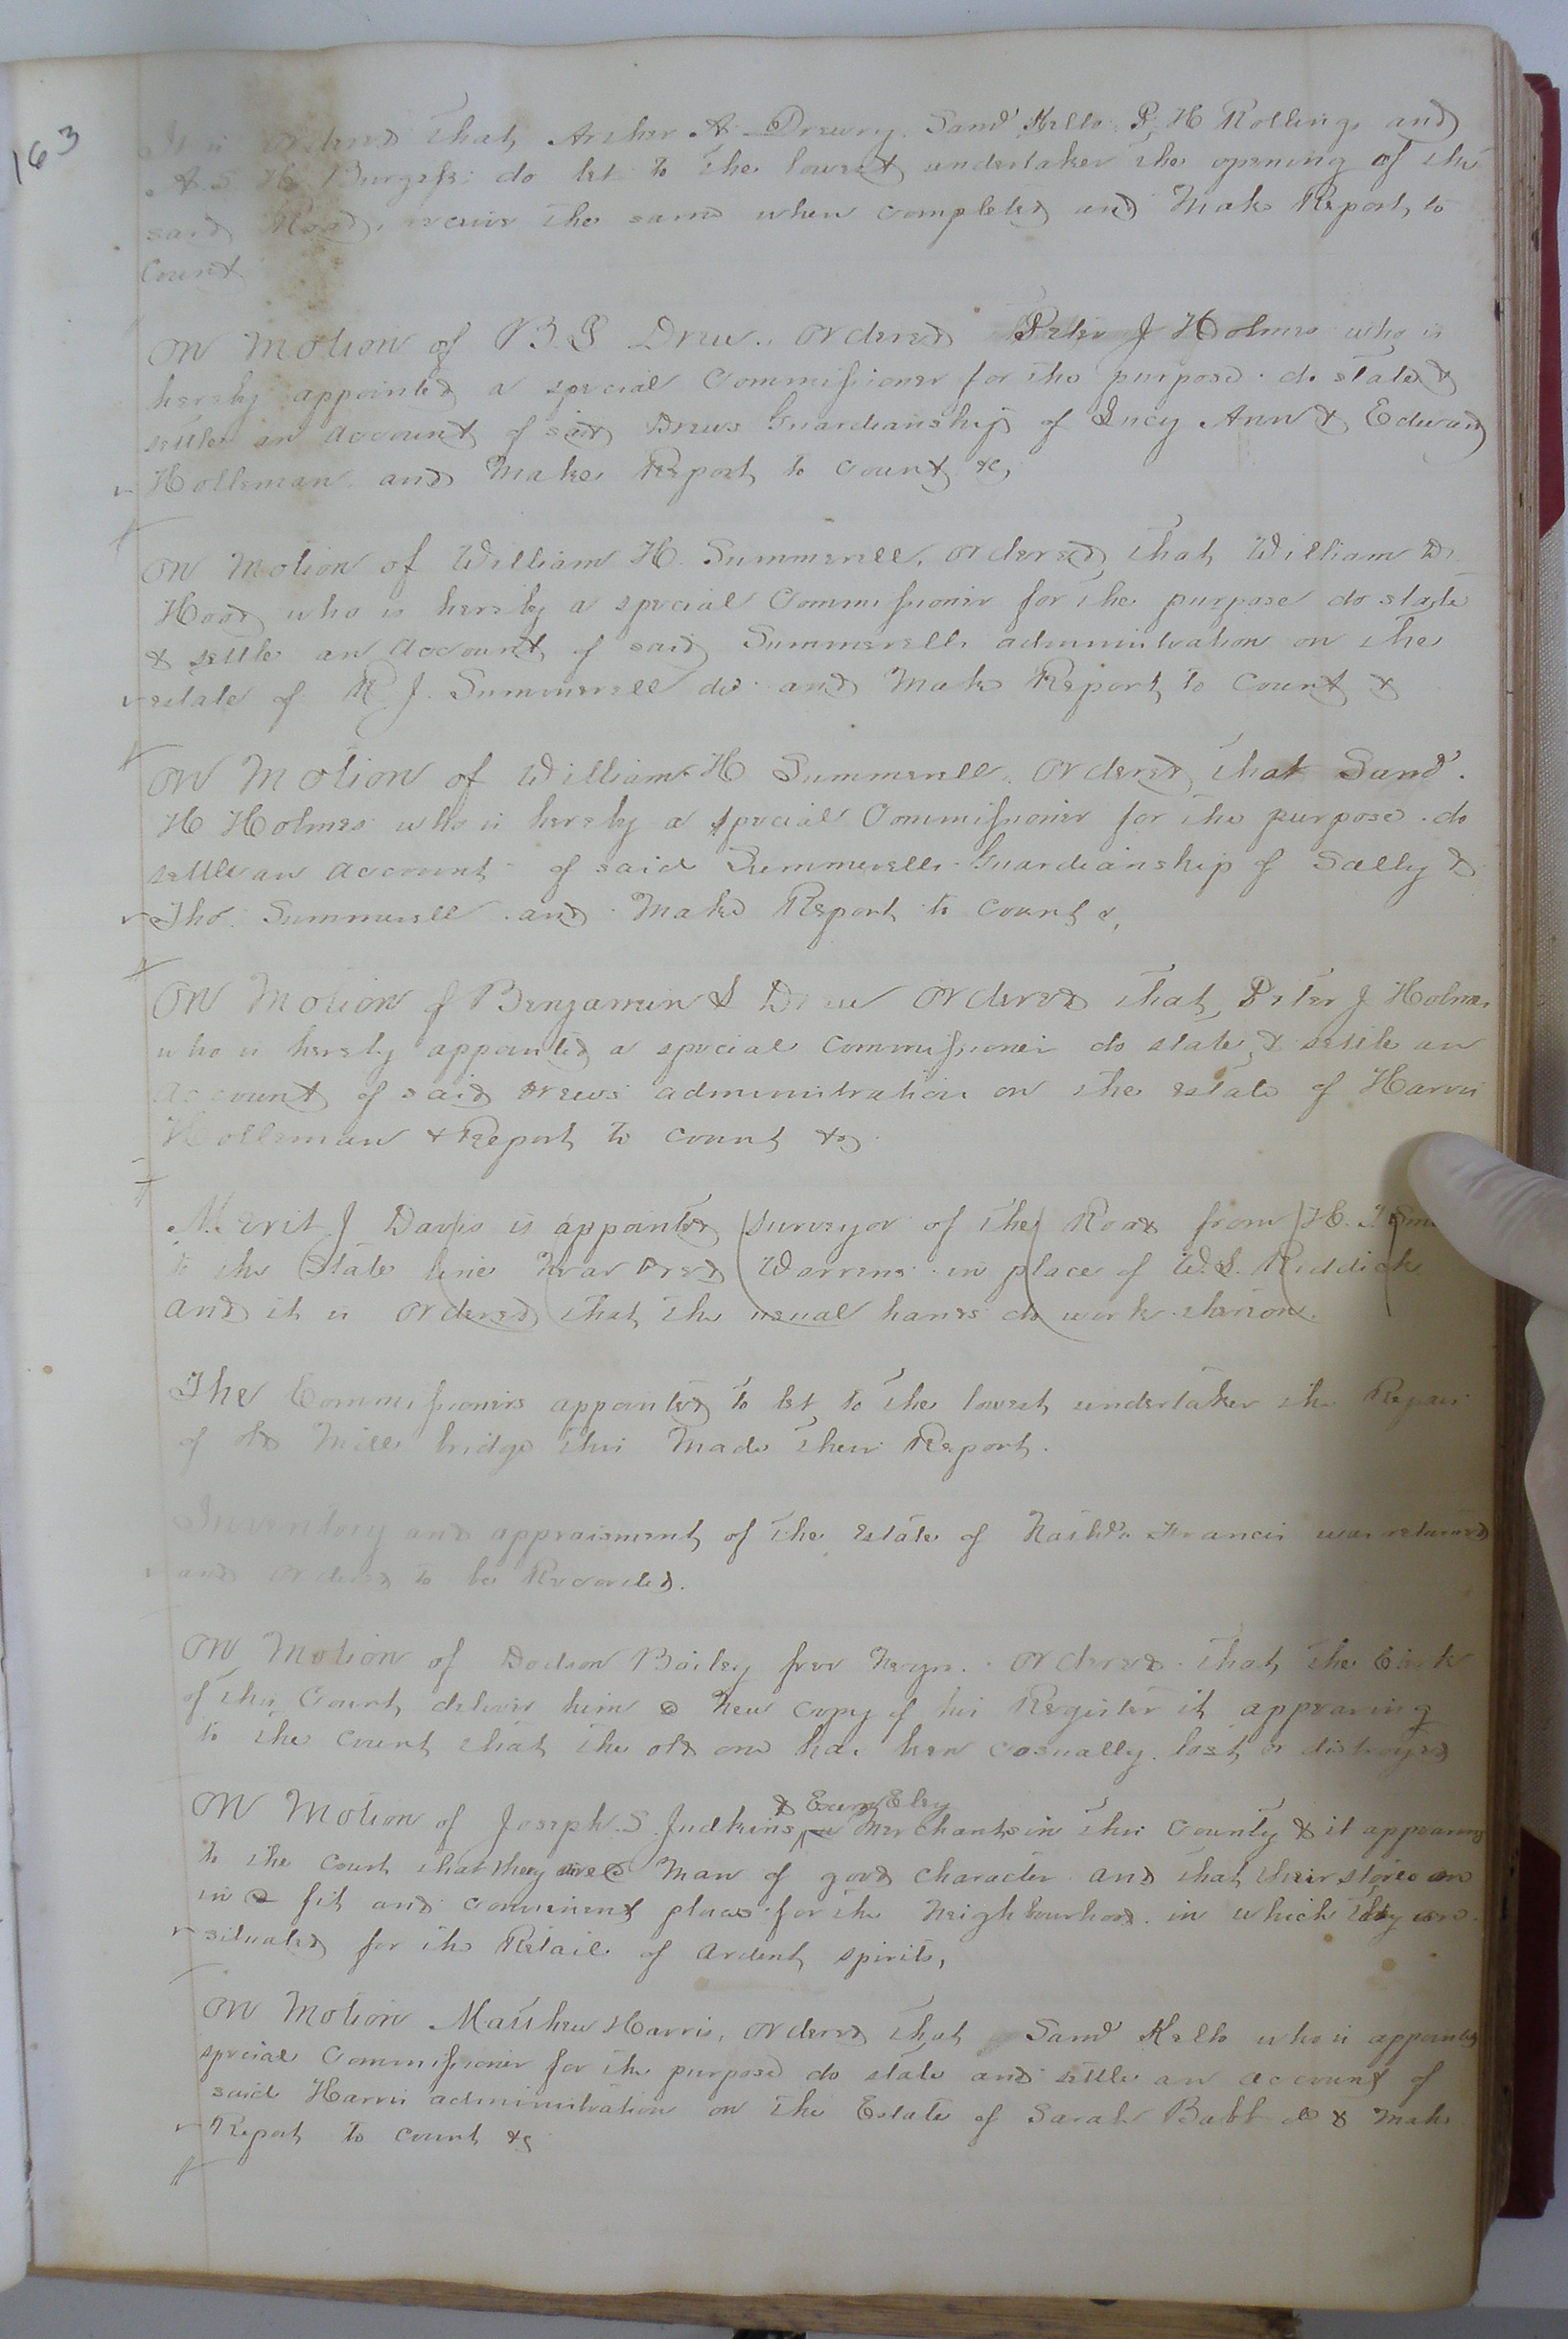 163
It is ordered that Archer A Drewry Saml Kello P. H Rollings and
A. S. H Burgess do let to the lowest undertaker the opening of the
said Road, receive the same when completed and Make Report to
Court
On Motion of B. S Drew. Ordered Peter J Holmes who is
hereby appointed a special Commissioner for the purpose do state &
settle an account of said Drews Guardianship of Lucy Ann & Edward
Holleman and Make Report to Court &c,
On Motion of William H. Summerell, ordered that William D.
Hood who is hereby a special Commissioner for the purpose do state
& settle an account of said Summerells administration on the
estate of R J. Summerell dec and Make Report to Court &
On Motion of William H Summerell. Ordered that Saml.
H Holmes who is hereby a special Commissioner for the purpose do
settle an account of said Summerells Guardianship of Sally &
Tho. Summerell and Make Report to Court &,
On Motion of Benjamin S Drew Ordered that Peter J Holmes
who is hereby appointed a special Commissioner do state & settle an
account of said Drews administration on the estate of Harris
Holleman & Report to Court &c
Merit J Davis is appointed surveyor of the Road from H.
to the State line near Warrens in place of W. S. Riddick
and it is ordered that the usual hands do work thereon.
The Commissioners appointed to let to the lowest undertaker the Repair
of old Mill bridge this Made their Report.
Inventory and appraisment of the Estate of Francis was returned
and Ordered to be Recorded.
On Motion of Dodson Bailey free Negro. Ordered that the Clerk
of this Court deliver him a New Copy of his Register it appearing
to the Court that the old one has been casually lost or distroyed
& Exum Eley
On Motion of Joseph. S. Judkins Merchants in this County & it appearing
to the Court that they are Man of good character and that their stores are
in fit and convenient places for the Neighbourhood in which they are
situated for the Retail of ardent spirits,
On Motion Matthew Harris, Ordered that Saml Kello who is appointed
special Commissioner for the purpose do state and settle an account of
said Harris administration on the Estate of Sarah Babb dec & Make
Report to Court &c